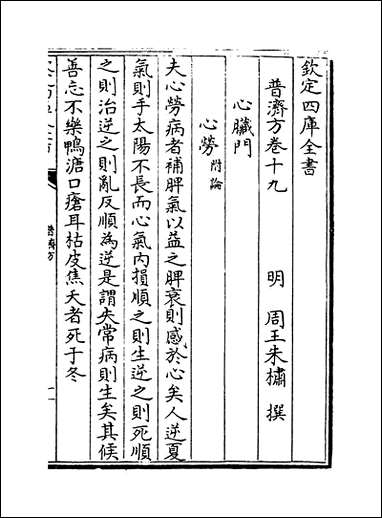 欽定四庫全書
普濟方卷十九
明 周王朱橚 撰
心臟門
心勞 附論
夫心勞病者補脾氣以益之脾衰則感於心矣人逆夏
氣則手太陽不長而心氣內損順之則生逆之則死順
之則治逆之則亂反順為逆是謂失常病則生矣其候
善忘不樂鴨溏口瘡耳枯皮焦夭者死于冬
普濟方